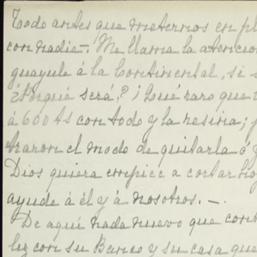 Todo antes que meternos en pl
con nadie. Me llama la atencion
guayule á la Continental, si s
¿Porqué será? ¡Qué raro que
á 600 ts con todo y la resina; p
traron el modo de quitarla ó
Dios quiera empiece a cortar hoj
ayude á él y á nosotros. —
De aquí nada nuevo que cont
liz con su Banco y su casa que